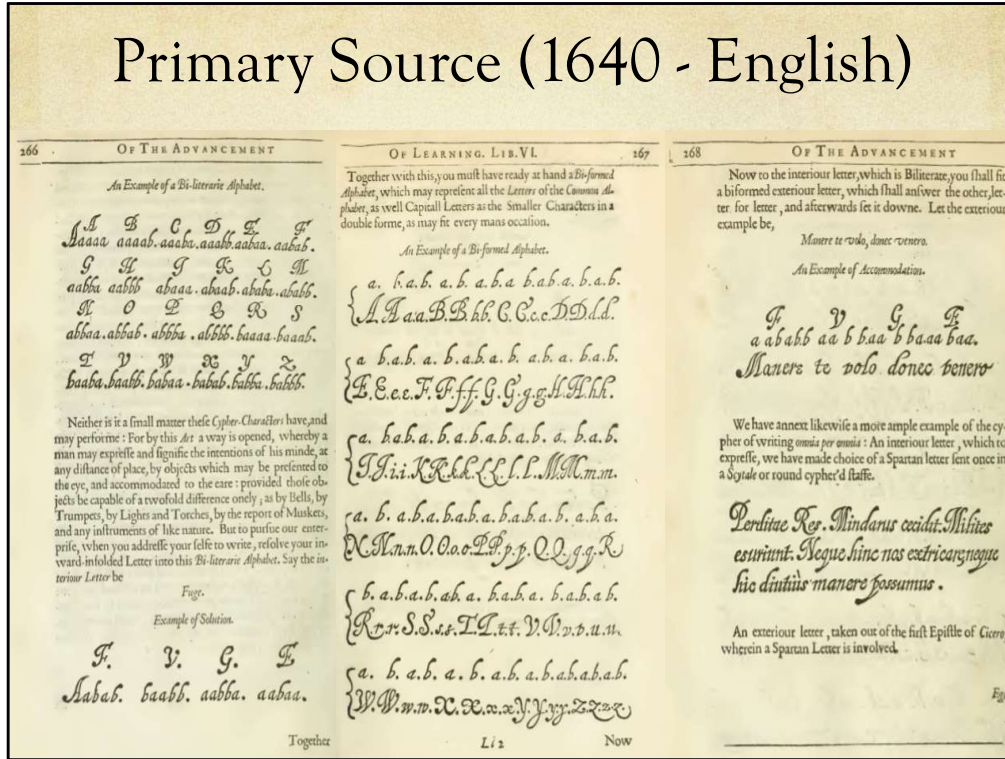 Primary Source (1640 - English)
266 OF THE ADVANCEMENT
An Example of a Bi-literarie Alphabet.
A B C D E F
Aaaaa aaaab. aaaba. aaabb. aabaa. aabab.
G H I K L M
aabba aabbb abaaa. abaab. ababa. ababb.
N O P Q R S
abbaa. abbab. abbba. abbbb. baaaa. baaab.
T V W X Y Z
baaba. baabb. babaa. babab. babba. babbb.
Neither is it a ſmall matter theſe Cypher-Characters have, and
may performe : For by this Art a way is opened, whereby a
man may expreſſe and ſignifie the intentions of his minde, at
any diſtance of place, by objects which may be preſented to
the eye, and accommodated to the eare : provided thoſe ob-
jects be capable of a twofold difference onely ; as by Bells, by
Trumpets, by Lights and Torches, by the report of Muskets,
and any inſtruments of like nature. But to purſue our enter-
priſe, when you addreſſe your ſelfe to write, reſolve your in-
ward-infolded Letter into this Bi-literarie Alphabet. Say the in-
teriour Letter be
Fuge.
Example of Solution.
F. V. G. E
Aabab. baabb. aabba. aabaa.
Together
OF LEARNING. LIB. VI. 167
Together with this, you muſt have ready at hand a Bi-formed
Alphabet, which may repreſent all the Letters of the Common Al-
phabet, as well Capitall Letters as the Smaller Characters in a
double forme, as may fit every mans occaſion.
An Example of a Bi-formed Alphabet.
a. b.a.b. a. b. a.b.a b.a.b.a. b.a.b.
A.A.a.a.B.B.b.b. C.C.c.c.D.D.d.d.
a b.a.b. a. b.a.b.a. b. a.b.a. b.a.b.
E.E.e.e.F.F.f.f.G.G.g.g.H.H.h.h.
a. b.a.b.a. b.a.b.a.b.a.b. a. b.a.b.
I.I.i.i.K.K.k.k.L.L.l.l.M.M.m.m.
a. b. a.b.a.b.a.b.a.b.a.b.a.b. a.b.a.
N.N.n.n.O.O.o.o.P.P.p.p.Q.Q.q.q.R
b. a.b.a.b.a.b. a. b.a.b.a. b.a.b.a.b.
R.r.r.S.S.s.s.T.T.t.t.V.V.v.v.u.u.
a. b. a.b. a. b. a.b.a.b.a.b.a.b.a.b.
W.W.w.w.X.X.x.x.Y.Y.y.y.Z.Z.z.z.
Li 2 Now
268 OF THE ADVANCEMENT
Now to the interiour letter, which is Biliterate, you ſhall fit
a biformed exteriour letter, which ſhall anſwer the other, let-
ter for letter, and afterwards ſet it downe. Let the exteriour
example be,
Manere te volo, donec venero.
An Example of Accommodation.
F V G E
a ababb aa b b aa b b aa baa.
Manere te volo donec venero
We have annext likewiſe a more ample example of the cy-
pher of writing omnia per omnia : An interiour letter, which to
expreſſe, we have made choice of a Spartan letter ſent once in
a Scytale or round cypher'd ſtaffe.
Perditae Res. Mindarus cecidit. Milites
esuriunt. Neque hinc nos extricare, neque
hic diutiùs manere possumus.
An exteriour letter, taken out of the firſt Epiſtle of Cicero,
wherein a Spartan Letter is involved.